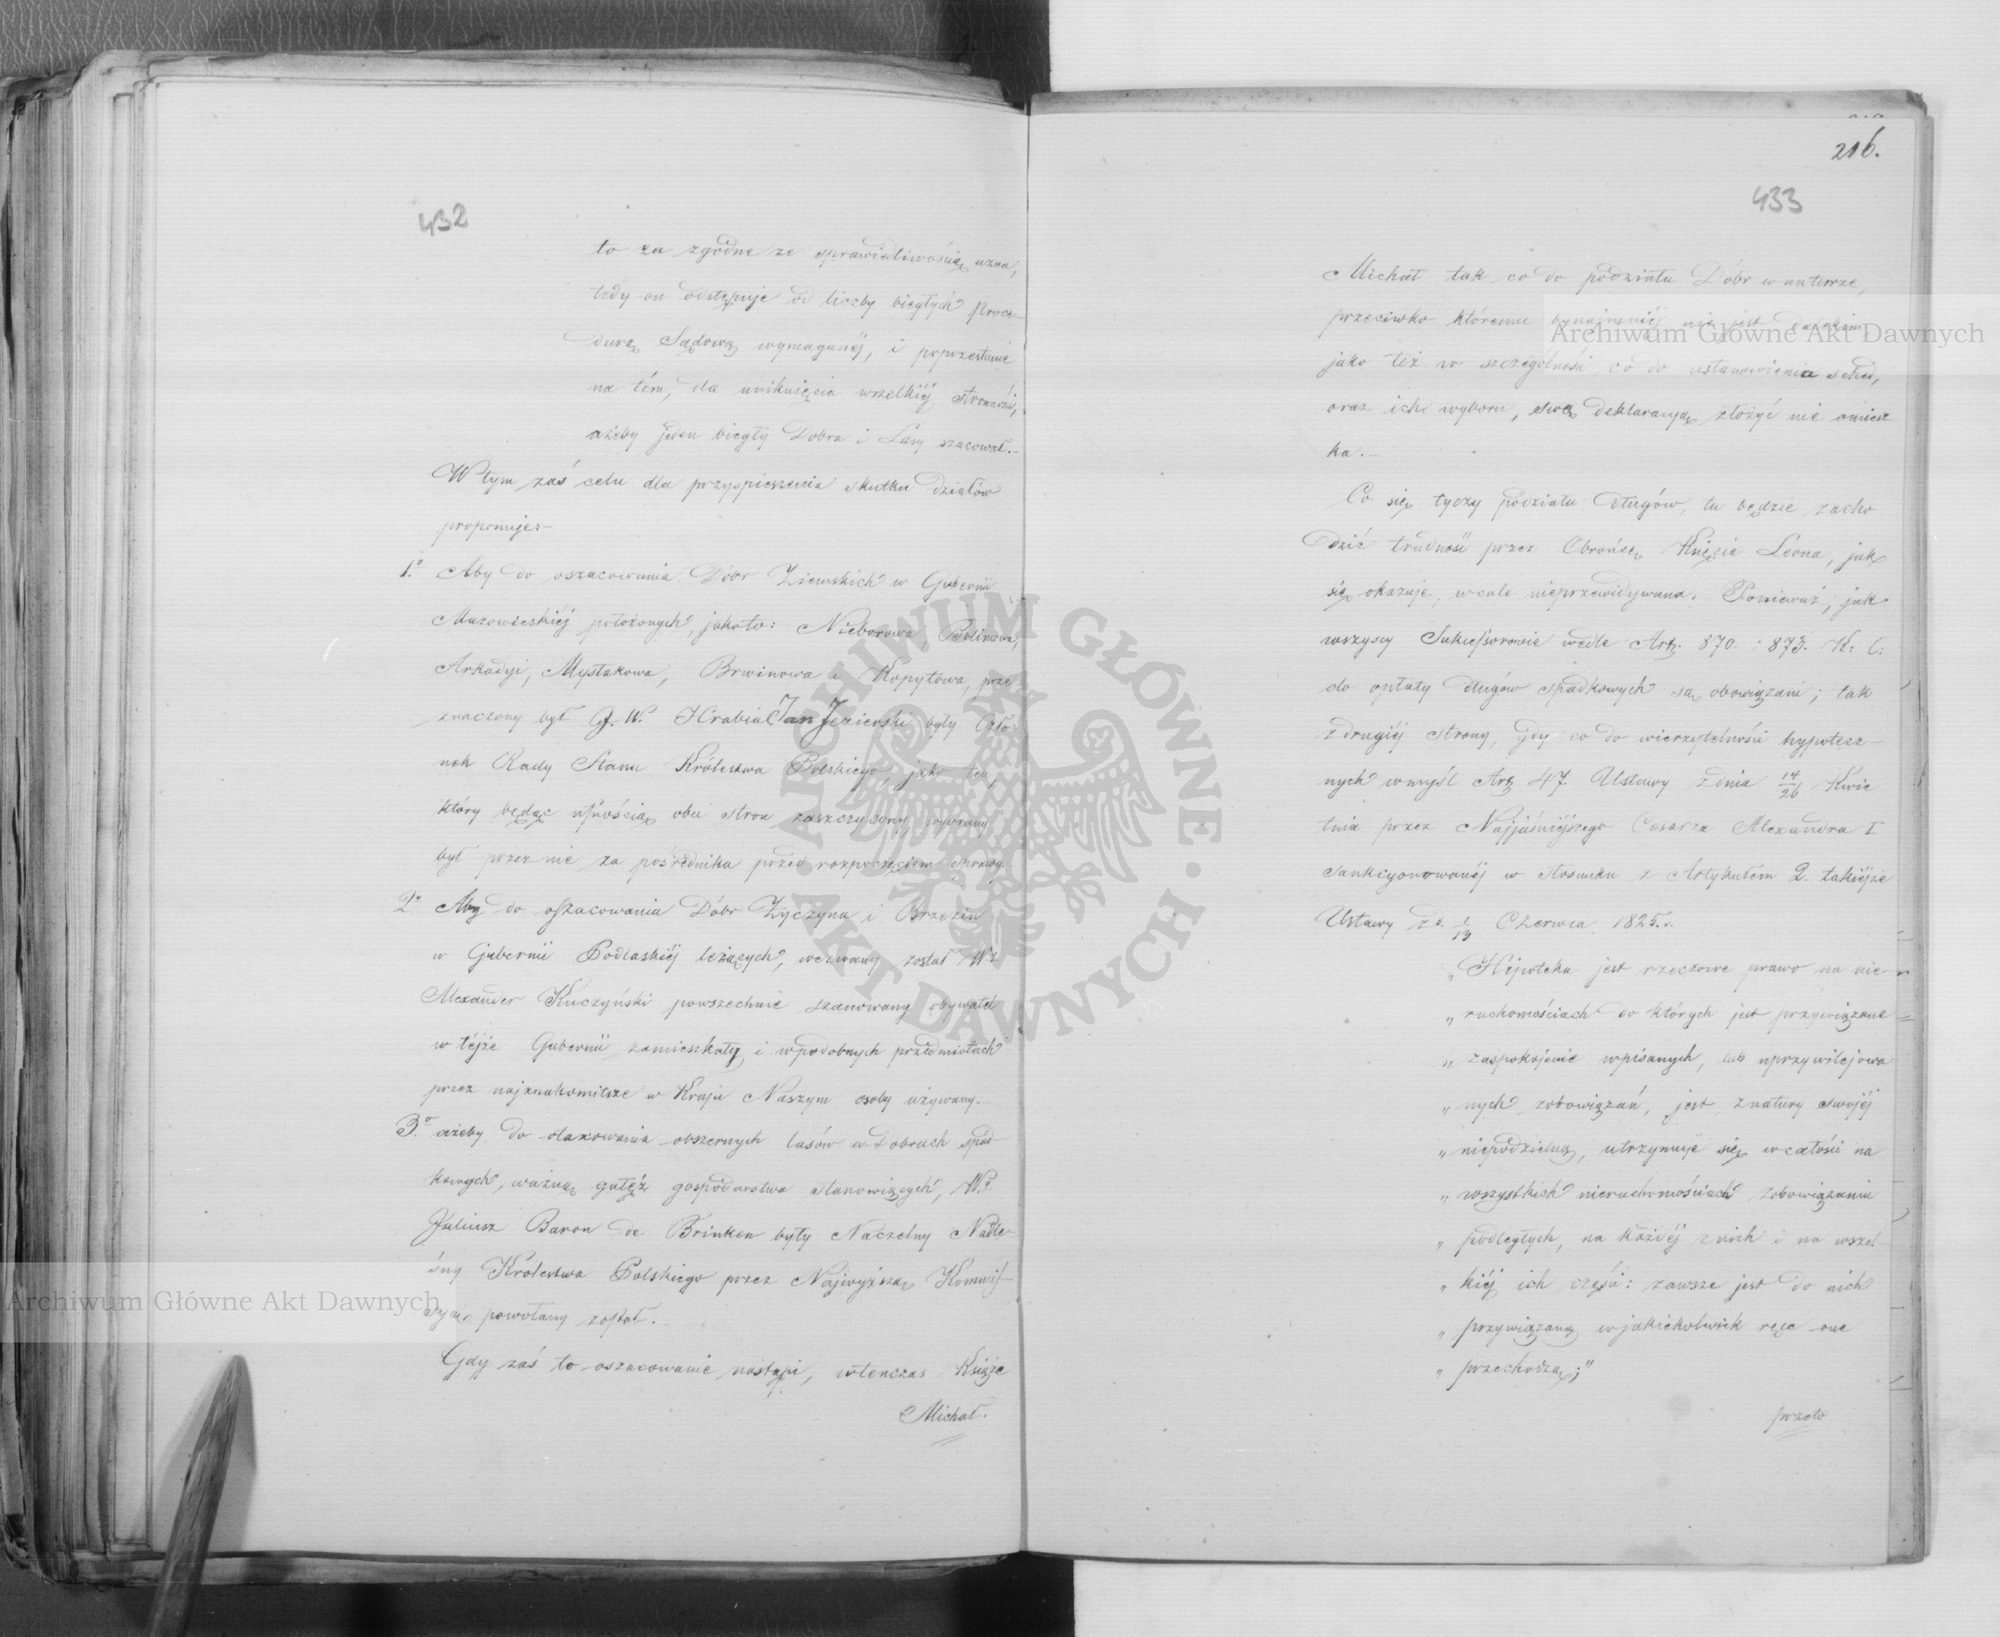 432
to za zgodne ze sprawiedliwością uzna,
tedy on odstępuje od liczby biegłych Proce-
durą Sądową wymaganéj, i poprzestanie
na tém, dla uniknięcia wszelkiéj stronności,
ażeby jeden biegły Dobra i Lasy szacował.-
W tym zaś celu dla przyspieszenia skutku działów
proponuje:-
1.o Aby do oszacowania Dóbr Ziemskich w Gubernii
Mazowieckiéj położonych, jakoto: Nieborowa Bolimowa,
Arkadyi, Mysłakowa, Brwinowa i Kopytowa, prze
znaczony był J. W. Hrabia Jan Jezierski były Czło
nek Rady Stanu Królestwa Polskiego, jako ten,
który będąc ufnością obu stron zaszczycony wybrany
był przez nie za pośrednika przed rozpoczęciem sprawy.
2o Aby do oszacowania Dóbr Życzyna i Brzezin
w Gubernii Podlaskiéj leżących, wezwany został Wż
Alexander Kuczyński powszechnie szanowany obywatel
w téjże Gubernii zamieszkały i w podobnych przedmiotach
przez najznakomitsze w Kraju Naszym osoby używany.
3.o ażeby do otaxowania obszernych lasów w Dobrach spad
kowych, ważną gałęź gospodarstwa stanowiących, Wż
Juliusz Baron de Brinken były Naczelny Nadle-
śny Królestwa Polskiego przez Najwyższą Kommis-
syą powołany został.
Gdy zaś to oszacowanie nastąpi, wtenczas Książe
Michał.
216.
433
Michał tak co do podziału Dóbr w naturze,
przeciwko któremu bynajmniéj nie jest
jako też w szczególności co do ustanowienia sched,
oraz ich wyboru, swą deklaracyą złożyć nie omiesz
ka.-
Co się tyczy podziału długów, tu będzie zacho
dzić trudność przez Obrońcę Księcia Léona, jak
się okazuje, wcale nieprzewidywana. Ponieważ, jak
wszyscy Sukcessorowie wedle Art. 870. i 873. K. C.
do opłaty długów spadkowych są obowiązani; tak
z drugiéj strony, gdy co do wierzytelności hypotecz-
nych w myśl Art 47. Ustawy z dnia 14/26 Kwie
tnia przez Najjaśniejszego Cesarza Alexandra I
sankcyonowanéj w stosunku z Artykułem 2. takiéjże
Ustawy z d. 1/13 Czerwca 1825.r.
„Hipoteka jest rzeczowe prawo na nie-
„ruchomościach do których jest przywiązane
„zaspokojenie wpisanych, lub uprzywilejowa
„nych zobowiązań, jest z natury swojéj
„niepodzielną, utrzymuje się w całości na
„wszystkich nieruchomościach zobowiązaniu
„podległych, na każdéj z nich i na wszel-
„kiéj ich części: zawsze jest do nich
„przywiązaną w jakiekolwiek ręce one
„przechodzą;"
przeto
Archiwum Główne Akt Dawnych
Archiwum Główne Akt Dawnych
ARCHIWUM GŁÓWNE AKT DAWNYCH